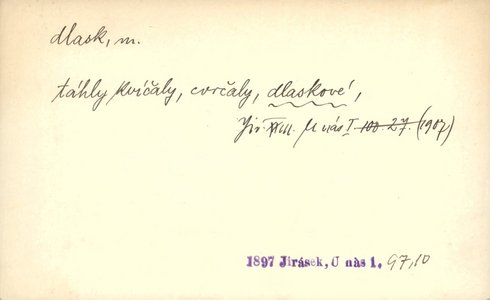 dlask, m.
táhly kvíčaly, cvrčaly, dlaskové,
Jir. XXIII. U nás I 100. 27. (1907)
1897 Jirásek, U nás 1. 97,10